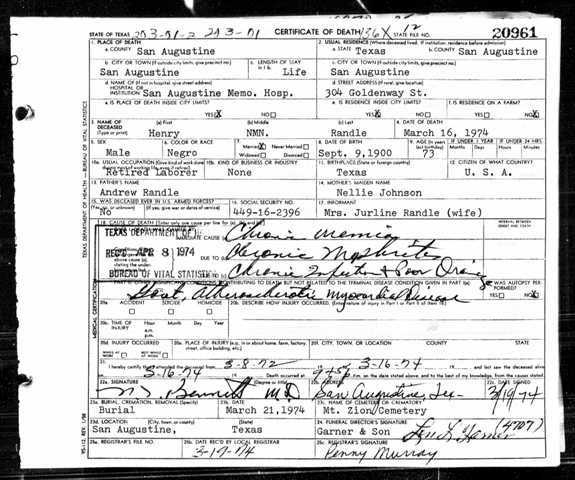 STATE OF TEXAS 203-01-2 203-01 CERTIFICATE OF DEATH 136X 12 STATE FILE NO. 20961
1. PLACE OF DEATH 2. USUAL RESIDENCE (Where deceased lived. If institution, residence before admission)
a. COUNTY San Augustine a. STATE Texas b. COUNTY San Augustine
b. CITY OR TOWN (If outside city limits, give precinct no.) c. LENGTH OF STAY c. CITY OR TOWN (If outside city limits, give precinct no.)
San Augustine Life San Augustine
d. NAME OF (If not in hospital, give street address) d. STREET ADDRESS (If rural, give location)
HOSPITAL OR INSTITUTION San Augustine Memo. Hosp. 304 Goldenway St.
e. IS PLACE OF DEATH INSIDE CITY LIMITS? e. IS RESIDENCE INSIDE CITY LIMITS? f. IS RESIDENCE ON A FARM?
YES X NO YES X NO YES NO X
3. NAME OF DECEASED (Type or print) (a) First (b) Middle (c) Last 4. DATE OF DEATH
Henry NMN. Randle March 16, 1974
5. SEX 6. COLOR OR RACE 7. Married X Never Married Widowed Divorced 8. DATE OF BIRTH 9. AGE (In years last birthday) IF UNDER 1 YEAR IF UNDER 24 HRS.
Months Days Hours Min.
Male Negro Sept. 9,1900 73
10a. USUAL OCCUPATION (Give kind of work done 10b. KIND OF BUSINESS OR INDUSTRY 11. BIRTHPLACE (State or foreign country) 12. CITIZEN OF WHAT COUNTRY?
Retired Laborer None Texas U. S. A.
13. FATHER'S NAME 14. MOTHER'S MAIDEN NAME
Andrew Randle Nellie Johnson
15. WAS DECEASED EVER IN U.S. ARMED FORCES? 16. SOCIAL SECURITY NO. 17. INFORMANT
(Yes, no, or unknown) (If yes, give war or dates of service)
No 449-16-2396 Mrs. Jurline Randle (wife)
18. CAUSE OF DEATH (Enter only one cause per line for (a), (b), and (c).) INTERVAL BETWEEN ONSET AND DEATH
TEXAS DEPARTMENT OF
REC'D APR 8 1974 DUE TO Chronic
BUREAU OF VITAL STATISTICS DUE TO Chronic Infection & Poor
19. WAS AUTOPSY PERFORMED?
YES NO X
Myocardial
20a. ACCIDENT SUICIDE HOMICIDE 20b. DESCRIBE HOW INJURY OCCURRED.
20c. TIME OF INJURY Hour Month Day Year
a.m.
p.m.
20d. INJURY OCCURRED 20e. PLACE OF INJURY (e.g., in or about home, farm, factory, street, office building, etc.) 20f. CITY, TOWN, OR LOCATION COUNTY STATE
WHILE AT WORK NOT WHILE AT WORK
21. I hereby certify that I attended the deceased from 3-8-72 to 3-16-74 and last saw the deceased alive
on 3-16-74 Death occurred at m. on the date stated above, and to the best of my knowledge, from the causes stated.
22a. SIGNATURE (Degree or title) 22b. ADDRESS 22c. DATE SIGNED
Bennett M.D San Augustine, Tex 3/19/74
23a. BURIAL, CREMATION, REMOVAL (Specify) 23b. DATE 23c. NAME OF CEMETERY OR CREMATORY
Burial March 21,1974 Mt. Zion Cemetery
23d. LOCATION (City, town, or county) (State) 24. FUNERAL DIRECTOR'S SIGNATURE
San Augustine, Texas Garner & Son (4707)
25a. REGISTRAR'S FILE NO. 25b. DATE REC'D BY LOCAL REGISTRAR 25c. REGISTRAR'S SIGNATURE
Penny Murray
TEXAS DEPARTMENT OF HEALTH — BUREAU OF VITAL STATISTICS
MEDICAL CERTIFICATION